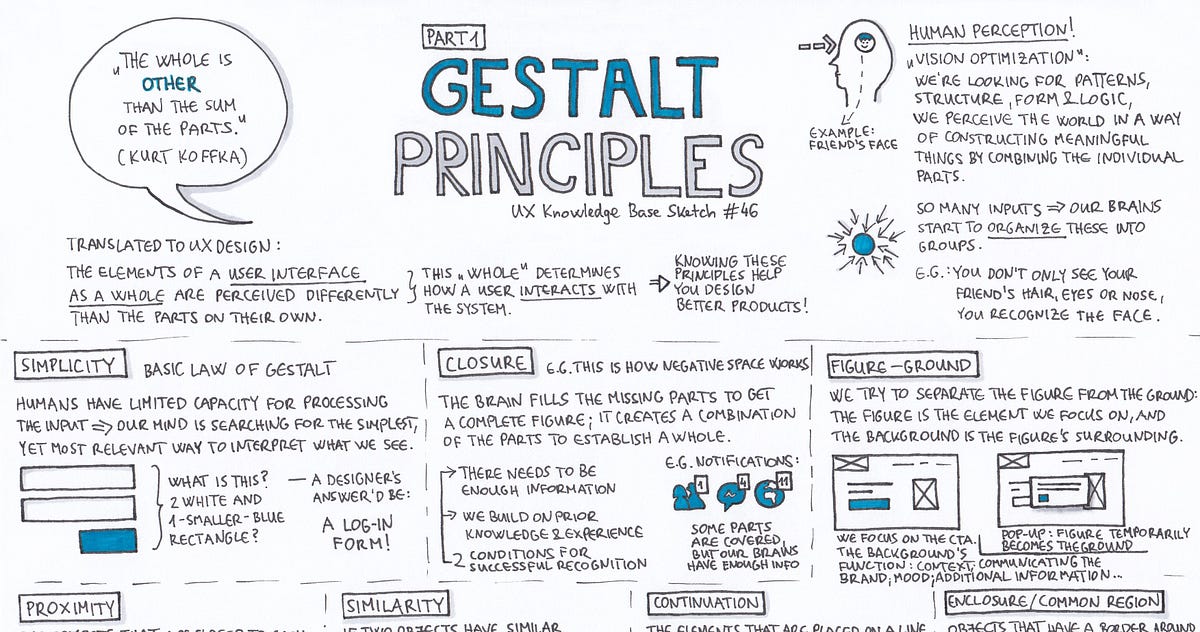 „THE WHOLE IS
OTHER
THAN THE SUM
OF THE PARTS."
(KURT KOFFKA)
PART 1
GESTALT
PRINCIPLES
UX Knowledge Base Sketch #46
EXAMPLE:
FRIEND'S FACE
HUMAN PERCEPTION!
„VISION OPTIMIZATION":
WE'RE LOOKING FOR PATTERNS,
STRUCTURE, FORM & LOGIC,
WE PERCEIVE THE WORLD IN A WAY
OF CONSTRUCTING MEANINGFUL
THINGS BY COMBINING THE INDIVIDUAL
PARTS.
SO MANY INPUTS ⇒ OUR BRAINS
START TO ORGANIZE THESE INTO
GROUPS.
E.G.: YOU DON'T ONLY SEE YOUR
FRIEND'S HAIR, EYES OR NOSE,
YOU RECOGNIZE THE FACE.
TRANSLATED TO UX DESIGN:
THE ELEMENTS OF A USER INTERFACE
AS A WHOLE ARE PERCEIVED DIFFERENTLY
THAN THE PARTS ON THEIR OWN.
THIS „WHOLE" DETERMINES
HOW A USER INTERACTS WITH
THE SYSTEM.
KNOWING THESE
PRINCIPLES HELP
YOU DESIGN
BETTER PRODUCTS!
SIMPLICITY
BASIC LAW OF GESTALT
HUMANS HAVE LIMITED CAPACITY FOR PROCESSING
THE INPUT ⇒ OUR MIND IS SEARCHING FOR THE SIMPLEST,
YET MOST RELEVANT WAY TO INTERPRET WHAT WE SEE.
WHAT IS THIS?
2 WHITE AND
1-SMALLER-BLUE
RECTANGLE?
— A DESIGNER'S
ANSWER'D BE:
A LOG-IN
FORM!
CLOSURE
E.G. THIS IS HOW NEGATIVE SPACE WORKS
THE BRAIN FILLS THE MISSING PARTS TO GET
A COMPLETE FIGURE; IT CREATES A COMBINATION
OF THE PARTS TO ESTABLISH A WHOLE.
THERE NEEDS TO BE
ENOUGH INFORMATION
WE BUILD ON PRIOR
KNOWLEDGE & EXPERIENCE
2 CONDITIONS FOR
SUCCESSFUL RECOGNITION
E.G. NOTIFICATIONS:
1
4
11
SOME PARTS
ARE COVERED,
BUT OUR BRAINS
HAVE ENOUGH INFO
FIGURE-GROUND
WE TRY TO SEPARATE THE FIGURE FROM THE GROUND:
THE FIGURE IS THE ELEMENT WE FOCUS ON, AND
THE BACKGROUND IS THE FIGURE'S SURROUNDING.
WE FOCUS ON THE CTA.
THE BACKGROUND'S
FUNCTION: CONTEXT: COMMUNICATING THE
BRAND; MOOD; ADDITIONAL INFORMATION...
POP-UP: FIGURE TEMPORARILY
BECOMES THE GROUND
PROXIMITY
SIMILARITY
IF TWO OBJECTS HAVE SIMILAR
CONTINUATION
THE ELEMENTS THAT ARE PLACED ON A LINE
ENCLOSURE/COMMON REGION
OBJECTS THAT HAVE A BORDER AROUND